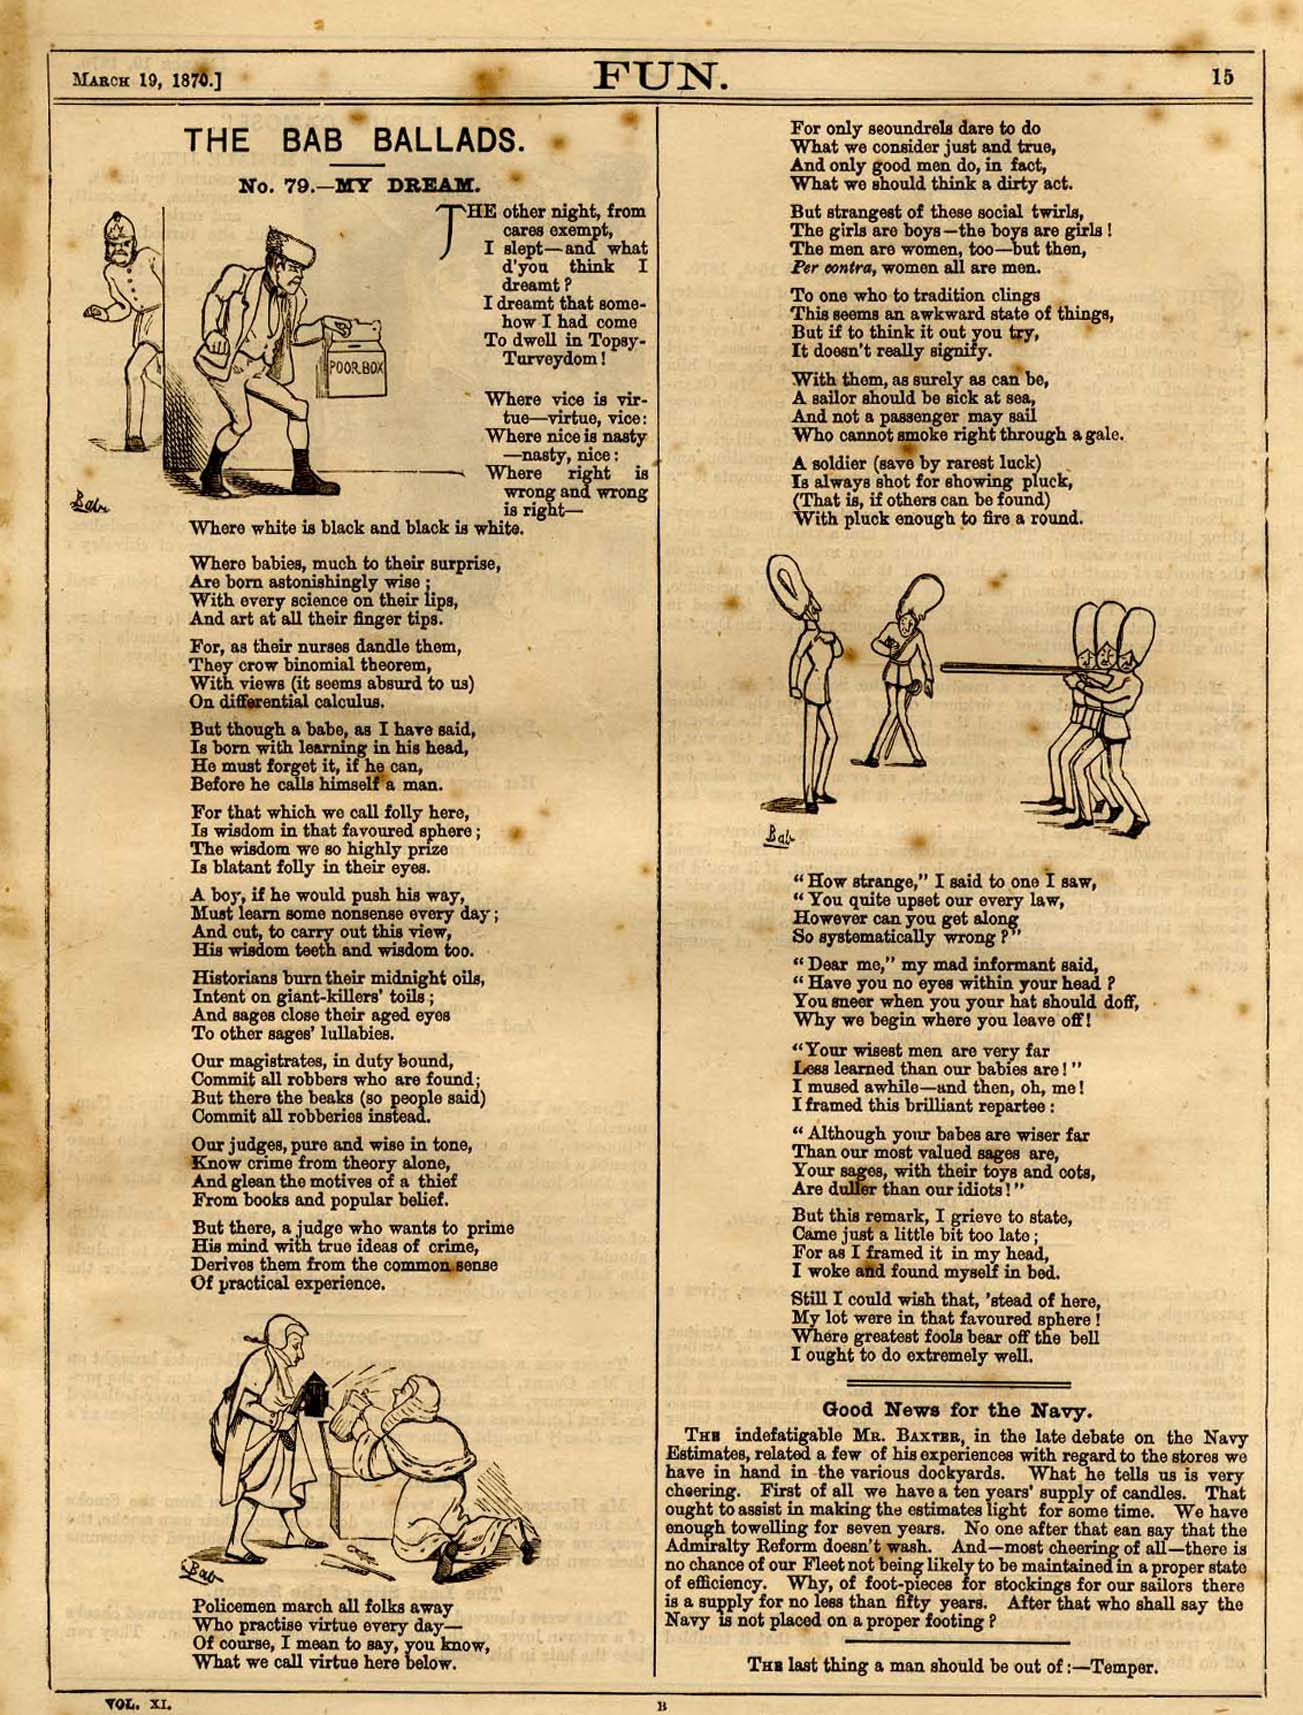 March 19, 1870.]
FUN.
15
THE BAB BALLADS.
No. 79.—MY DREAM.
THE other night, from
cares exempt,
I slept—and what
d'you think I
dreamt?
I dreamt that some-
how I had come
To dwell in Topsy-
Turveydom!
Where vice is vir-
tue—virtue, vice:
Where nice is nasty
—nasty, nice:
Where right is
wrong and wrong
is right—
Where white is black and black is white.
Where babies, much to their surprise,
Are born astonishingly wise;
With every science on their lips,
And art at all their finger tips.
For, as their nurses dandle them,
They crow binomial theorem,
With views (it seems absurd to us)
On differential calculus.
But though a babe, as I have said,
Is born with learning in his head,
He must forget it, if he can,
Before he calls himself a man.
For that which we call folly here,
Is wisdom in that favoured sphere;
The wisdom we so highly prize
Is blatant folly in their eyes.
A boy, if he would push his way,
Must learn some nonsense every day;
And cut, to carry out this view,
His wisdom teeth and wisdom too.
Historians burn their midnight oils,
Intent on giant-killers' toils;
And sages close their aged eyes
To other sages' lullabies.
Our magistrates, in duty bound,
Commit all robbers who are found;
But there the beaks (so people said)
Commit all robberies instead.
Our judges, pure and wise in tone,
Know crime from theory alone,
And glean the motives of a thief
From books and popular belief.
But there, a judge who wants to prime
His mind with true ideas of crime,
Derives them from the common sense
Of practical experience.
Policemen march all folks away
Who practise virtue every day—
Of course, I mean to say, you know,
What we call virtue here below.
POOR BOX
Bab
Bab
For only scoundrels dare to do
What we consider just and true,
And only good men do, in fact,
What we should think a dirty act.
But strangest of these social twirls,
The girls are boys—the boys are girls!
The men are women, too—but then,
Per contra, women all are men.
To one who to tradition clings
This seems an awkward state of things,
But if to think it out you try,
It doesn't really signify.
With them, as surely as can be,
A sailor should be sick at sea,
And not a passenger may sail
Who cannot smoke right through a gale.
A soldier (save by rarest luck)
Is always shot for showing pluck,
(That is, if others can be found)
With pluck enough to fire a round.
Bab
"How strange," I said to one I saw,
"You quite upset our every law,
However can you get along
So systematically wrong?"
"Dear me," my mad informant said,
"Have you no eyes within your head?
You sneer when you your hat should doff,
Why we begin where you leave off!
"Your wisest men are very far
Less learned than our babies are!"
I mused awhile—and then, oh, me!
I framed this brilliant repartee:
"Although your babes are wiser far
Than our most valued sages are,
Your sages, with their toys and cots,
Are duller than our idiots!"
But this remark, I grieve to state,
Came just a little bit too late;
For as I framed it in my head,
I woke and found myself in bed.
Still I could wish that, 'stead of here,
My lot were in that favoured sphere!
Where greatest fools bear off the bell
I ought to do extremely well.
Good News for the Navy.
The indefatigable Mr. Baxter, in the late debate on the Navy
Estimates, related a few of his experiences with regard to the stores we
have in hand in the various dockyards. What he tells us is very
cheering. First of all we have a ten years' supply of candles. That
ought to assist in making the estimates light for some time. We have
enough towelling for seven years. No one after that can say that the
Admiralty Reform doesn't wash. And—most cheering of all—there is
no chance of our Fleet not being likely to be maintained in a proper state
of efficiency. Why, of foot-pieces for stockings for our sailors there
is a supply for no less than fifty years. After that who shall say the
Navy is not placed on a proper footing?
The last thing a man should be out of:—Temper.
VOL. XI.
B